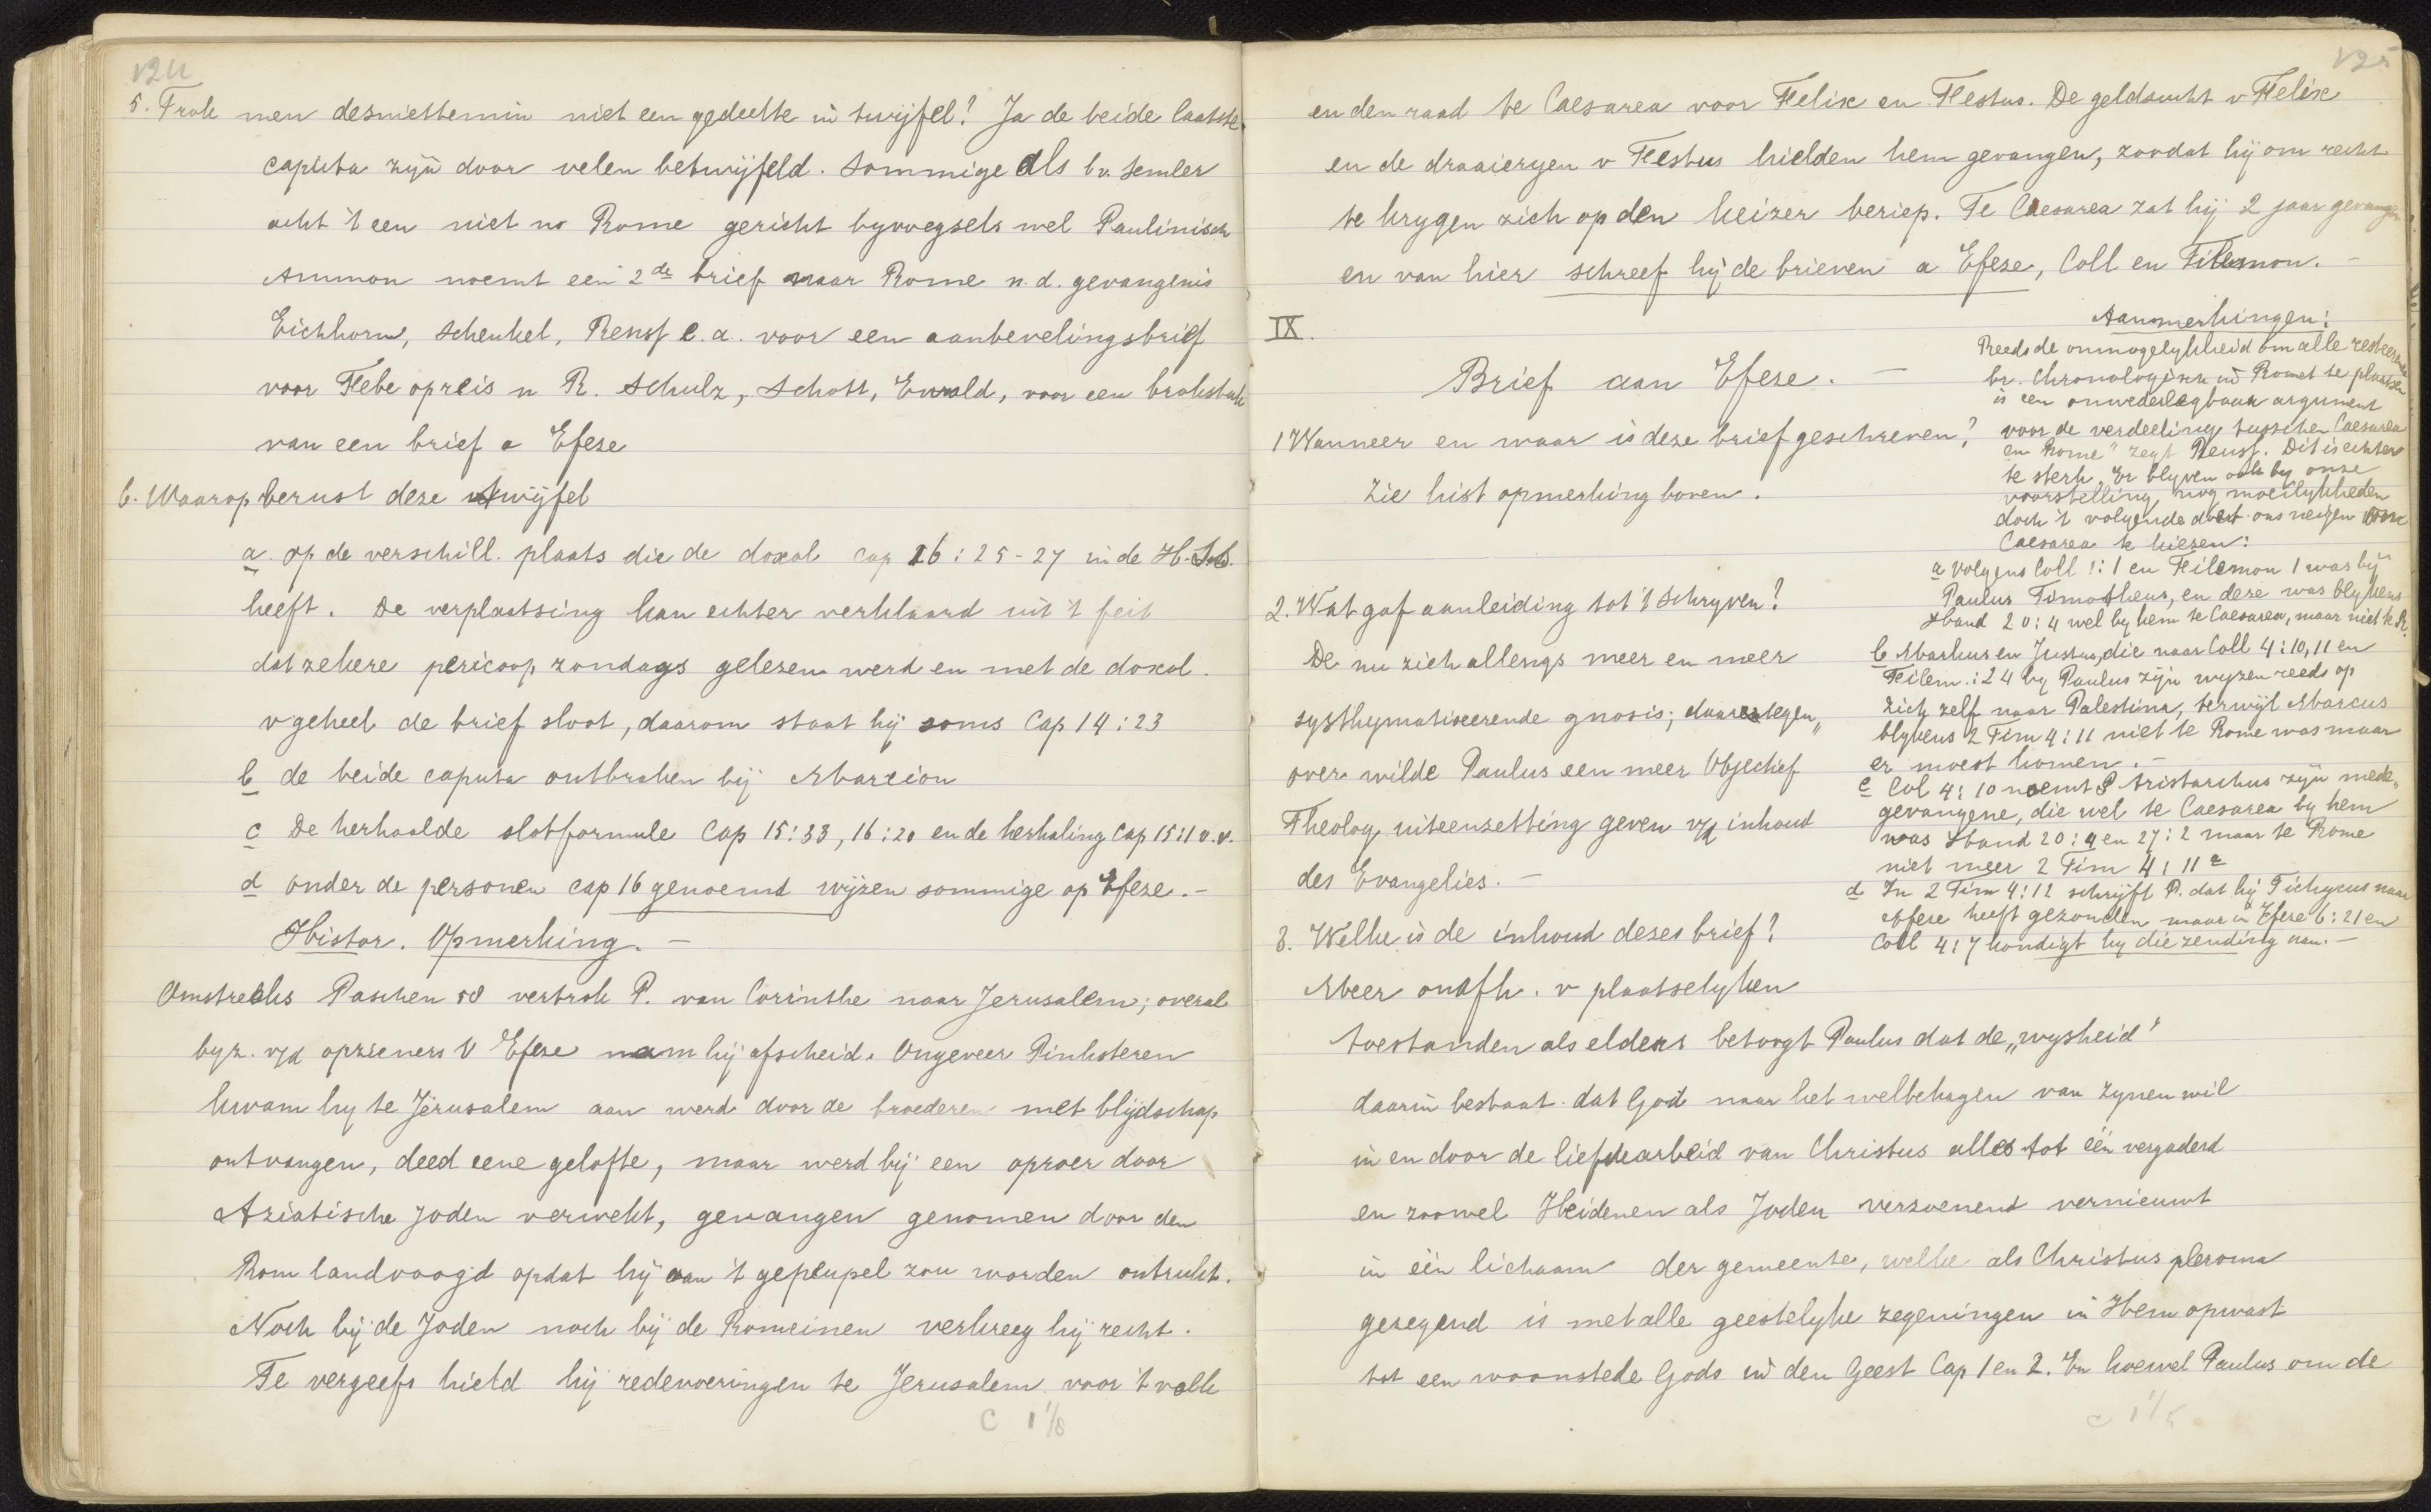 124
5. Trok men desniettemin niet een gedeelte in twijfel? Ja de beide laatste
caputa zijn door velen betwijfeld. Sommige als bv. Semler
acht 't een niet nr Rome gericht byvoegsels wel Paulinisch
Ammon noemt een 2de brief naar Rome n. d. gevangenis
Eichhorn, Schenkel, Renss e. a. voor een aanbevelingsbrief
voor Febe op reis n R. Schulz, Schott, Ewald, voor een brokstuk
van een brief a Efeze
6. Waarop berust deze twijfel
a. op de verschill. plaats die de doxol cap 16:25-27 in de H.S.S.
heeft. De verplaatsing kan echter verklaard uit 't feit
dat zekere pericoop zondags gelezen werd en met de doxol.
v geheel de brief sloot, daarom staat hij soms Cap 14:23
b de beide caputa ontbraken bij Marcion
c De herhaalde slotformule Cap 15:33, 16:20 en de herhaling Cap 15:1 v.v.
d onder de personen cap 16 genoemd wijzen sommige op Efeze.-
Histor. Opmerking. -
Omstreeks Paschen 58 vertrok P. van Corinthe naar Jerusalem; overal
byz. v/d opzieners v Efeze nam hij afscheid. Ongeveer Pinksteren
kwam hy te Jerusalem aan werd door de broederen met blijdschap
ontvangen, deed eene gelofte, maar werd bij een oproer door
Aziatische Joden verwekt, gevangen genomen door den
Rom landvoogd opdat hij aan 't gepeupel zou worden ontrukt.
Noch bij de Joden noch bij de Romeinen verkreeg hij recht.
Te vergeefs hield hij redevoeringen te Jerusalem voor 't volk
C 1 1/8
125
en den raad te Caesarea voor Felix en Festus. De geldzucht v Felix
en de draaierijen v Festus hielden hem gevangen, zoodat hij om recht
te krygen zich op den keizer beriep. Te Caesarea zat hij 2 jaar gevangen
en van hier schreef hij de brieven a Efeze, Coll en Filemon. -
IX.
Brief aan Efeze. -
1 Wanneer en waar is deze brief geschreven?
Zie hist opmerking boven.
2. Wat gaf aanleiding tot 't schryven?
De nu zich allengs meer en meer
systhymatiseerende gnosis; daartegen„
over wilde Paulus een meer Objectief
Theolog uiteenzetting geven v/d inhoud
des Evangelies. -
3. Welke is de inhoud dezes brief?
Meer onafh. v plaatselyken
toestanden als elders betoogt Paulus dat de „wysheid"
daarin bestaat dat God naar het welbehagen van Zynen wil
in en door de liefdearbeid van Christus alles tot één vergaderd
en zoowel Heidenen als Joden verzoenend vernieuwt
in één lichaam der gemeente, welke als Christus pleroma
gezegend is met alle geestelyke zegeningen in Hem opwast
tot een woonstede Gods in den Geest Cap 1 en 2. En hoewel Paulus om de
c 1 1/5
Aanmerkingen:
Reeds de onmogelykheid om alle resteerende
br. Chronologisch in Rome te plaatsen
is een onwederlegbaar argument
voor de verdeeling tusschen Caesarea
en Rome" zegt Reuss. Dit is echter
te sterk. Er blyven ook by onze
voorstelling nog moeilykheden
doch 't volgende doet ons neigen voor
Caesarea te kiezen:
a volgens Coll 1:1 en Filemon 1 was bij
Paulus Timotheus, en deze was blykens
Hand 20:4 wel by hem te Caesarea, maar niet te R.
b Markus en Justus, die naar Coll 4:10,11 en
Filem.:24 by Paulus zijn wyzen reeds op
zich zelf naar Palestina, terwijl Marcus
blykens 2 Tim 4:11 niet te Rome was maar
er moest komen. -
c Col 4:10 noemt P Aristarchus zijn mede-
gevangene, die wel te Caesarea by hem
was Hand 20:4 en 27:2 maar te Rome
niet meer 2 Tim 4:11a
d In 2 Tim 4:12 schrijft P. dat hij Tichycus naar
Efeze heeft gezonden maar in Efeze 6:21 en
Coll 4:7 kondigt hy die zending aan. -